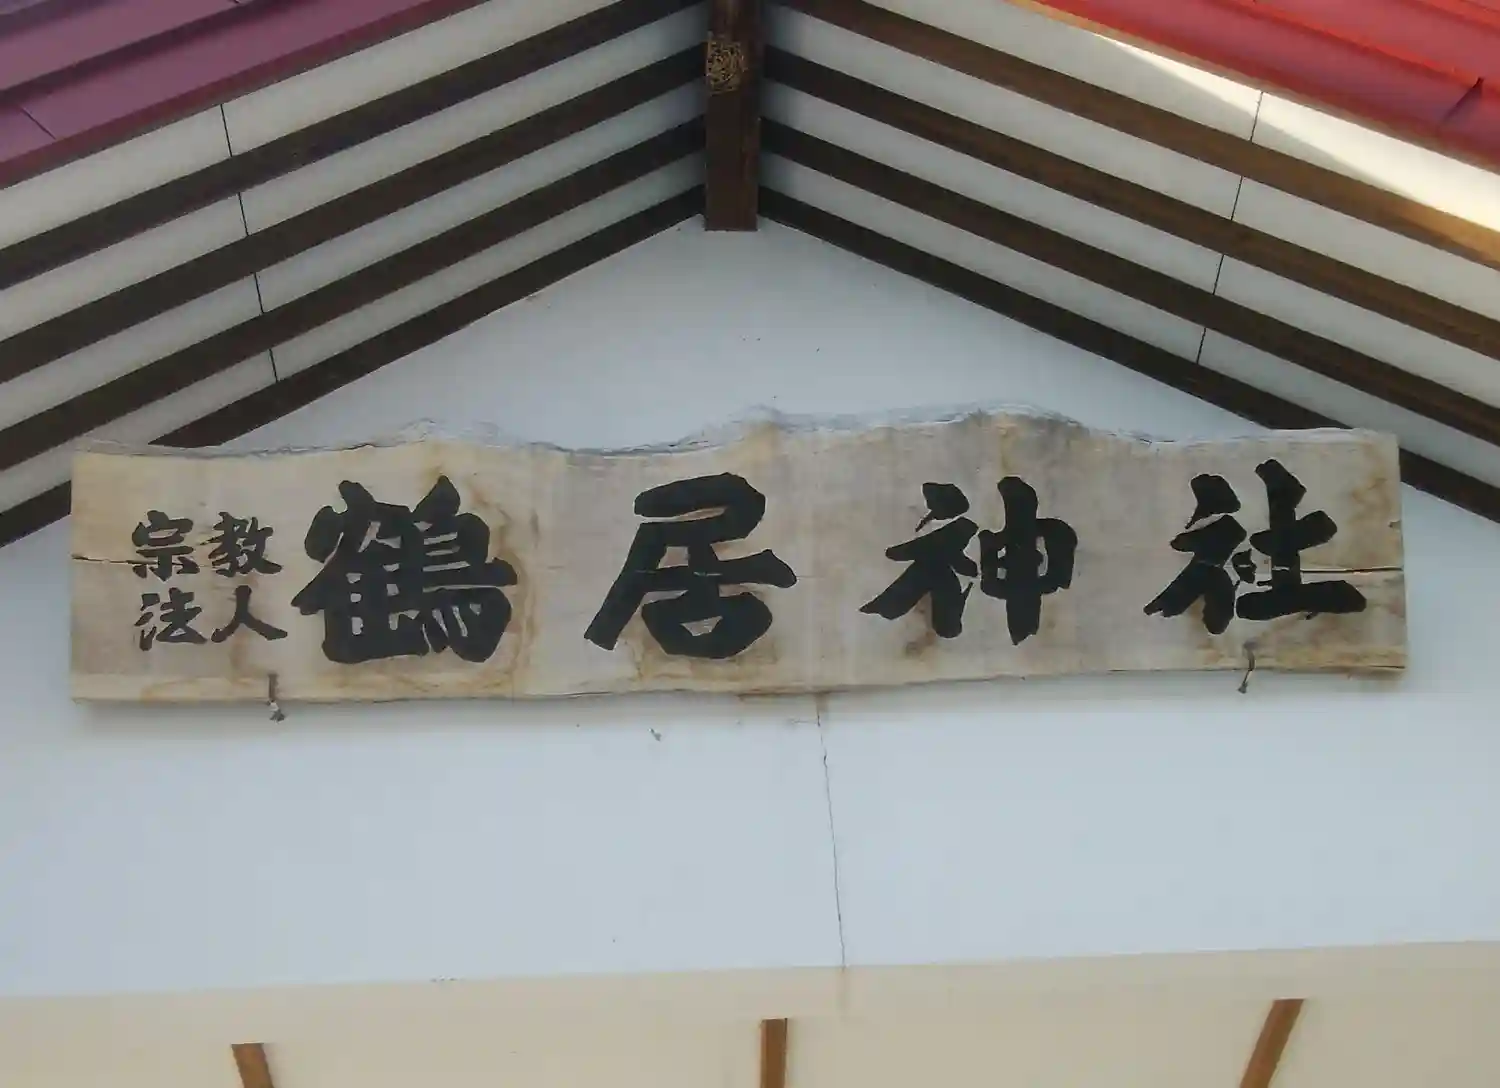 宗教法人 鶴居神社